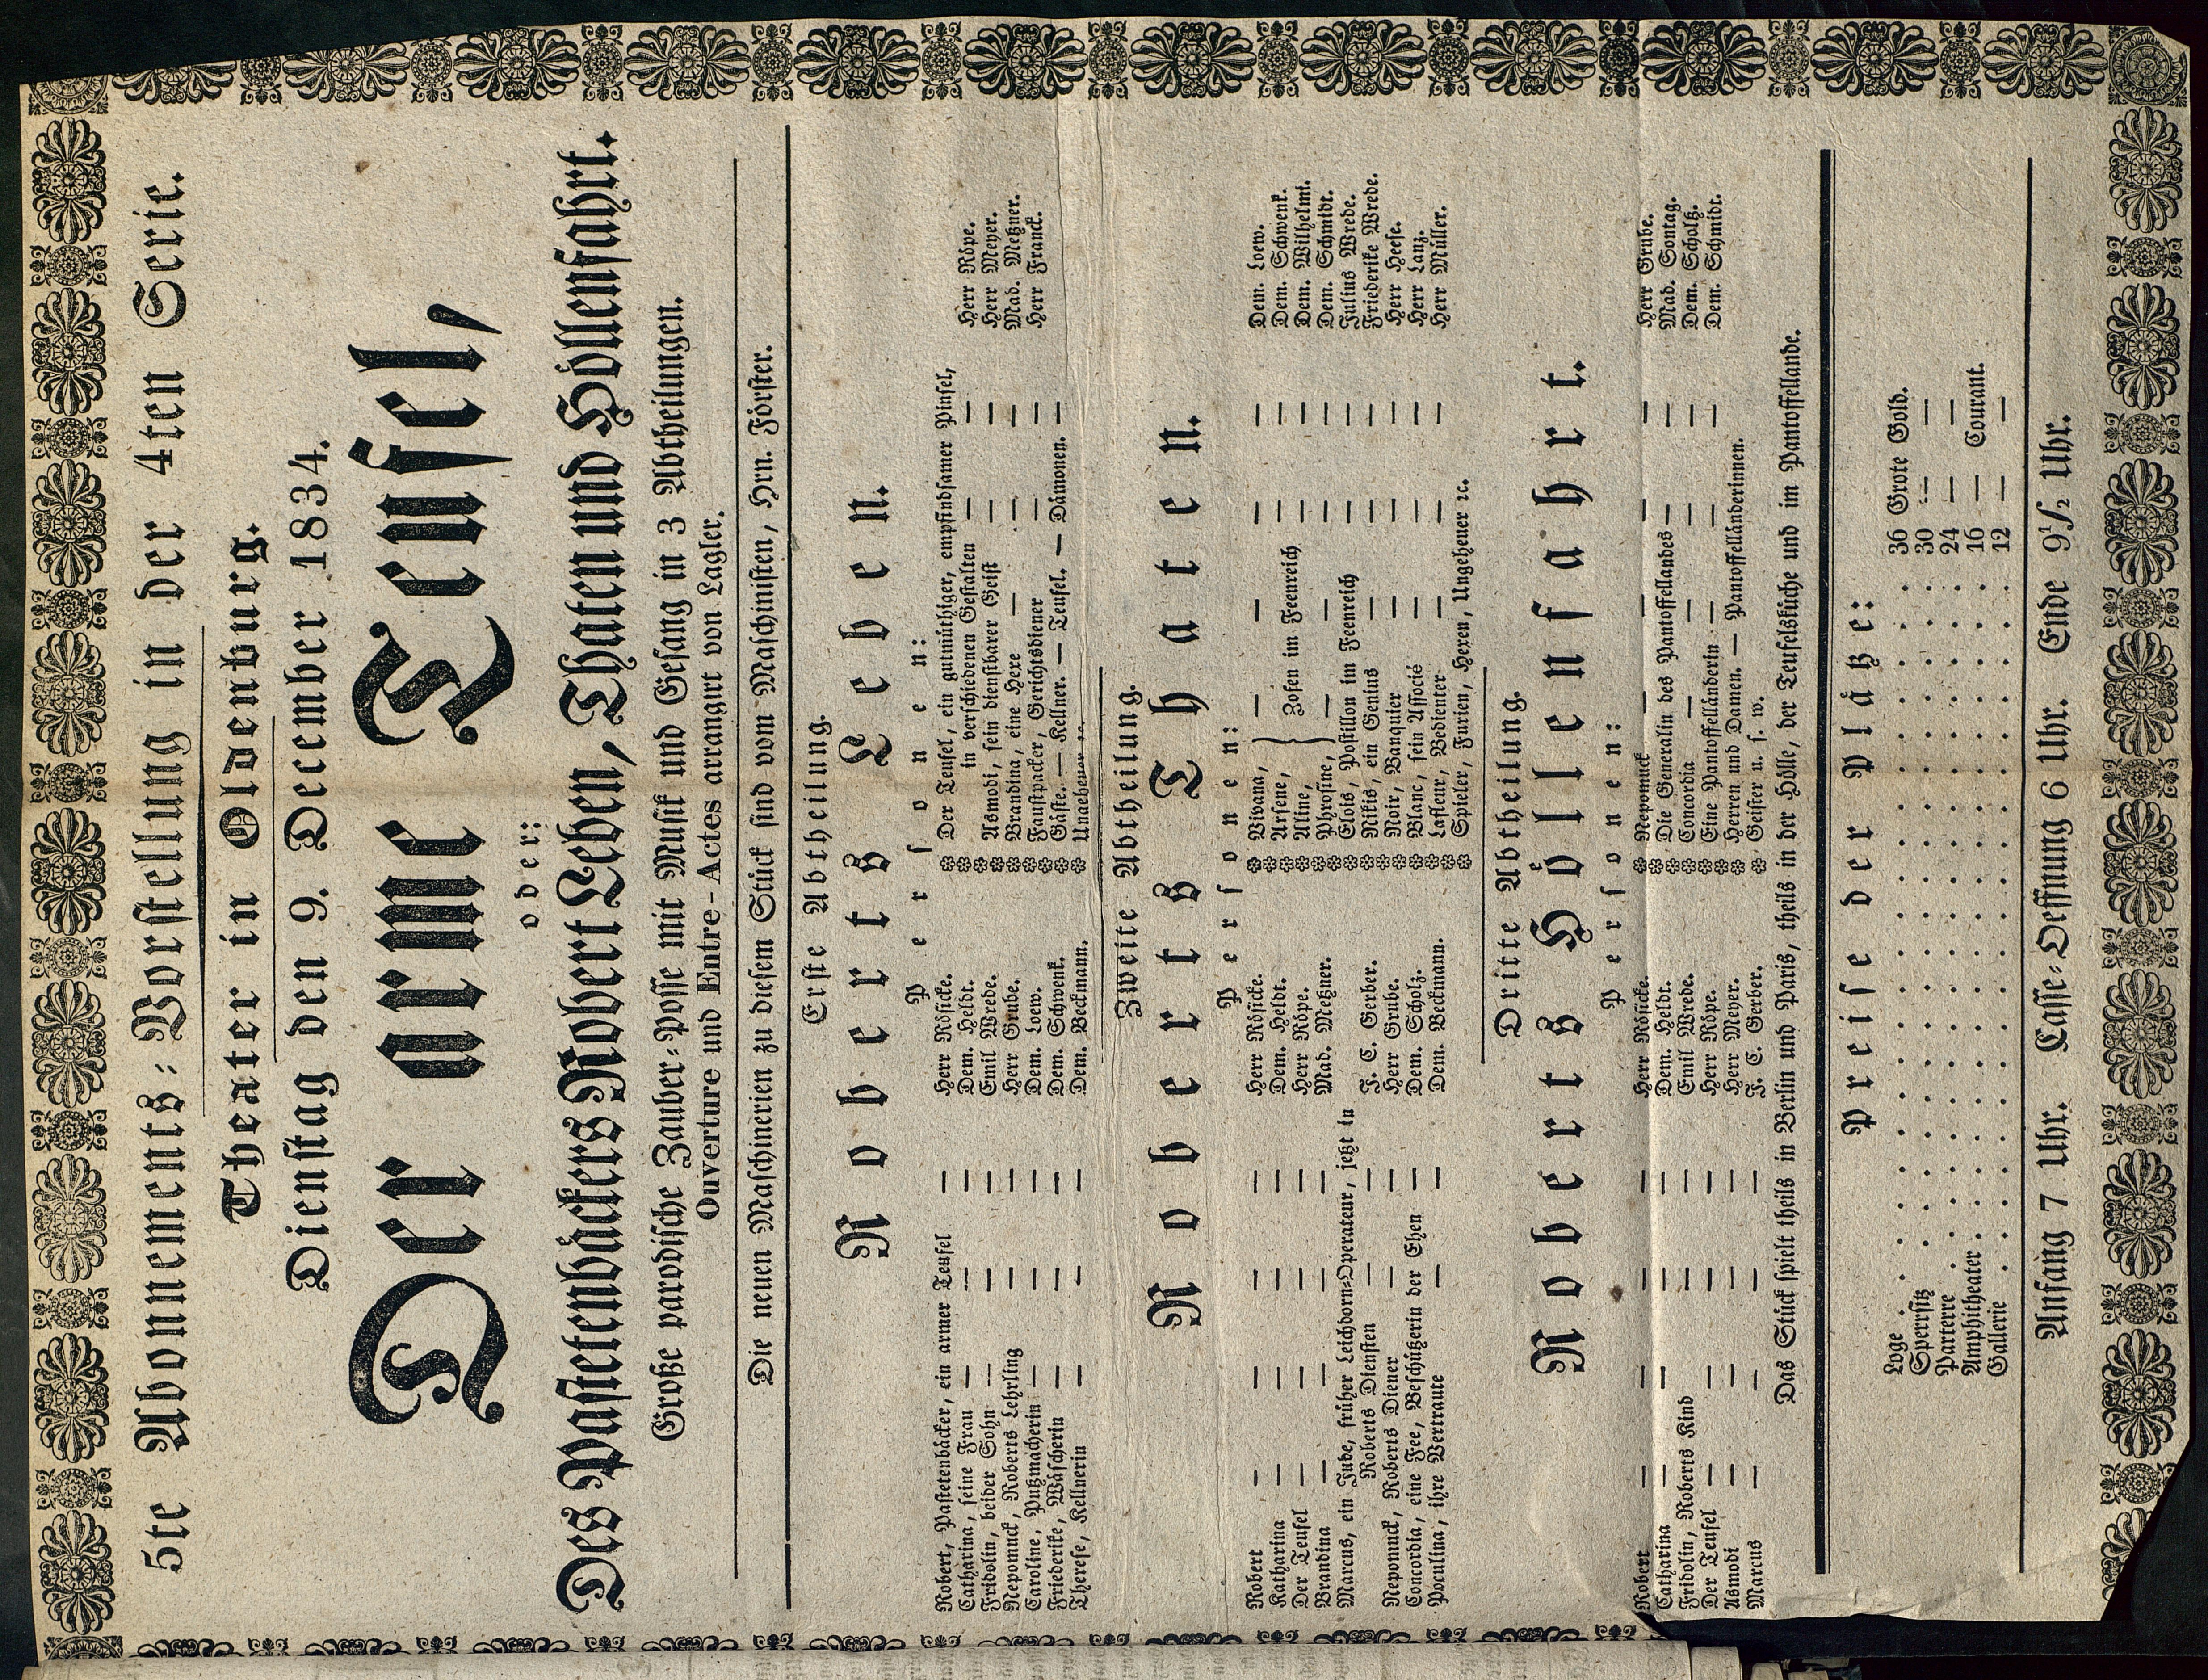 5te Abonnements-Vorstellung in der 4ten Serie.
Theater in Oldenburg.
Dienstag den 9. December 1834.
Der arme Teufel,
oder:
Des Pastetenbäckers Robert Leben, Thaten und Höllenfahrt.
Große parodische Zauber-Posse mit Musik und Gesang in 3 Abtheilungen.
Ouverture und Entre-Actes arrangirt von Lagler.
Die neuen Maschinerien zu diesem Stück sind vom Maschinisten, Hrn. Förster.
Erste Abtheilung.
Roberts Leben.
Personen:
Robert, Pastetenbäcker, ein armer Teufel — Herr Rösicke.
Catharina, seine Frau — — — Dem. Heldt.
Fridolin, beider Sohn — — — Emil Wrede.
Nepomuck, Roberts Lehrling — — Herr Grube.
Caroline, Putzmacherin — — — Dem. Loew.
Friederike, Wäscherin — — — Dem. Schwenk.
Therese, Kellnerin — — — Dem. Beckmann.
Der Teufel, ein gutmüthiger, empfindsamer Pinsel,
in verschiedenen Gestalten — — Herr Röpe.
Asmodi, sein dienstbarer Geist — — Herr Meyer.
Brandina, eine Hexe — — — Mad. Metzner.
Faustpacker, Gerichtsdiener — — Herr Franck.
Gäste. — Kellner. — Teufel. — Dämonen. —
Ungeheuer ꝛc.
Zweite Abtheilung.
Roberts Thaten.
Personen:
Robert — — — — Herr Rösicke.
Katharina — — — — Dem. Heldt.
Der Teufel — — — — Herr Röpe.
Brandina — — — — Mad. Metzner.
Marcus, ein Jude, früher Leichdorn-Operateur, jetzt in
Roberts Diensten — — J. C. Gerber.
Nepomuck, Roberts Diener — — Herr Grube.
Concordia, eine Fee, Beschützerin der Ehen — Dem. Scholz.
Poculina, ihre Vertraute — — Dem. Beckmann.
Bivana, — — — — Dem. Loew.
Arsene, Zofen im Feenreich — — Dem. Schwenk.
Aline, — — Dem. Wilhelmi.
Phrosine, — — — — Dem. Schmidt.
Elois, Postillon im Feenreich — — Julius Wrede.
Nikis, ein Genius — — — Friederike Wrede.
Noir, Banquier — — — Herr Heese.
Blanc, sein Associé — — — Herr Lanz.
Lafleur, Bedienter — — — Herr Müller.
Spieler, Furien, Hexen, Ungeheuer ꝛc.
Dritte Abtheilung.
Roberts Höllenfahrt.
Personen:
Robert — — — — Herr Rösicke.
Catharina — — — — Dem. Heldt.
Fridolin, Roberts Kind — — Emil Wrede.
Der Teufel — — — — Herr Röpe.
Asmodi — — — — Herr Meyer.
Marcus — — — — J. C. Gerber.
Nepomuck — — — — Herr Grube.
Die Generalin des Pantoffellandes — — Mad. Sontag.
Concordia — — — — Dem. Scholtz.
Eine Pantoffelländerin — — — Dem. Schmidt.
Herren und Damen. — Pantoffelländerinnen.
Geister u. s. w.
Das Stück spielt theils in Berlin und Paris, theils in der Hölle, der Teufelsküche und im Pantoffellande.
Preise der Plätze:
Loge . . . . 36 Grote Gold.
Sperrsitz . . . . 30 — —
Parterre . . . . 24 — —
Amphitheater . . . . 16 — Courant.
Gallerie . . . . 12 — —
Anfang 7 Uhr. Casse-Oeffnung 6 Uhr. Ende 9½ Uhr.